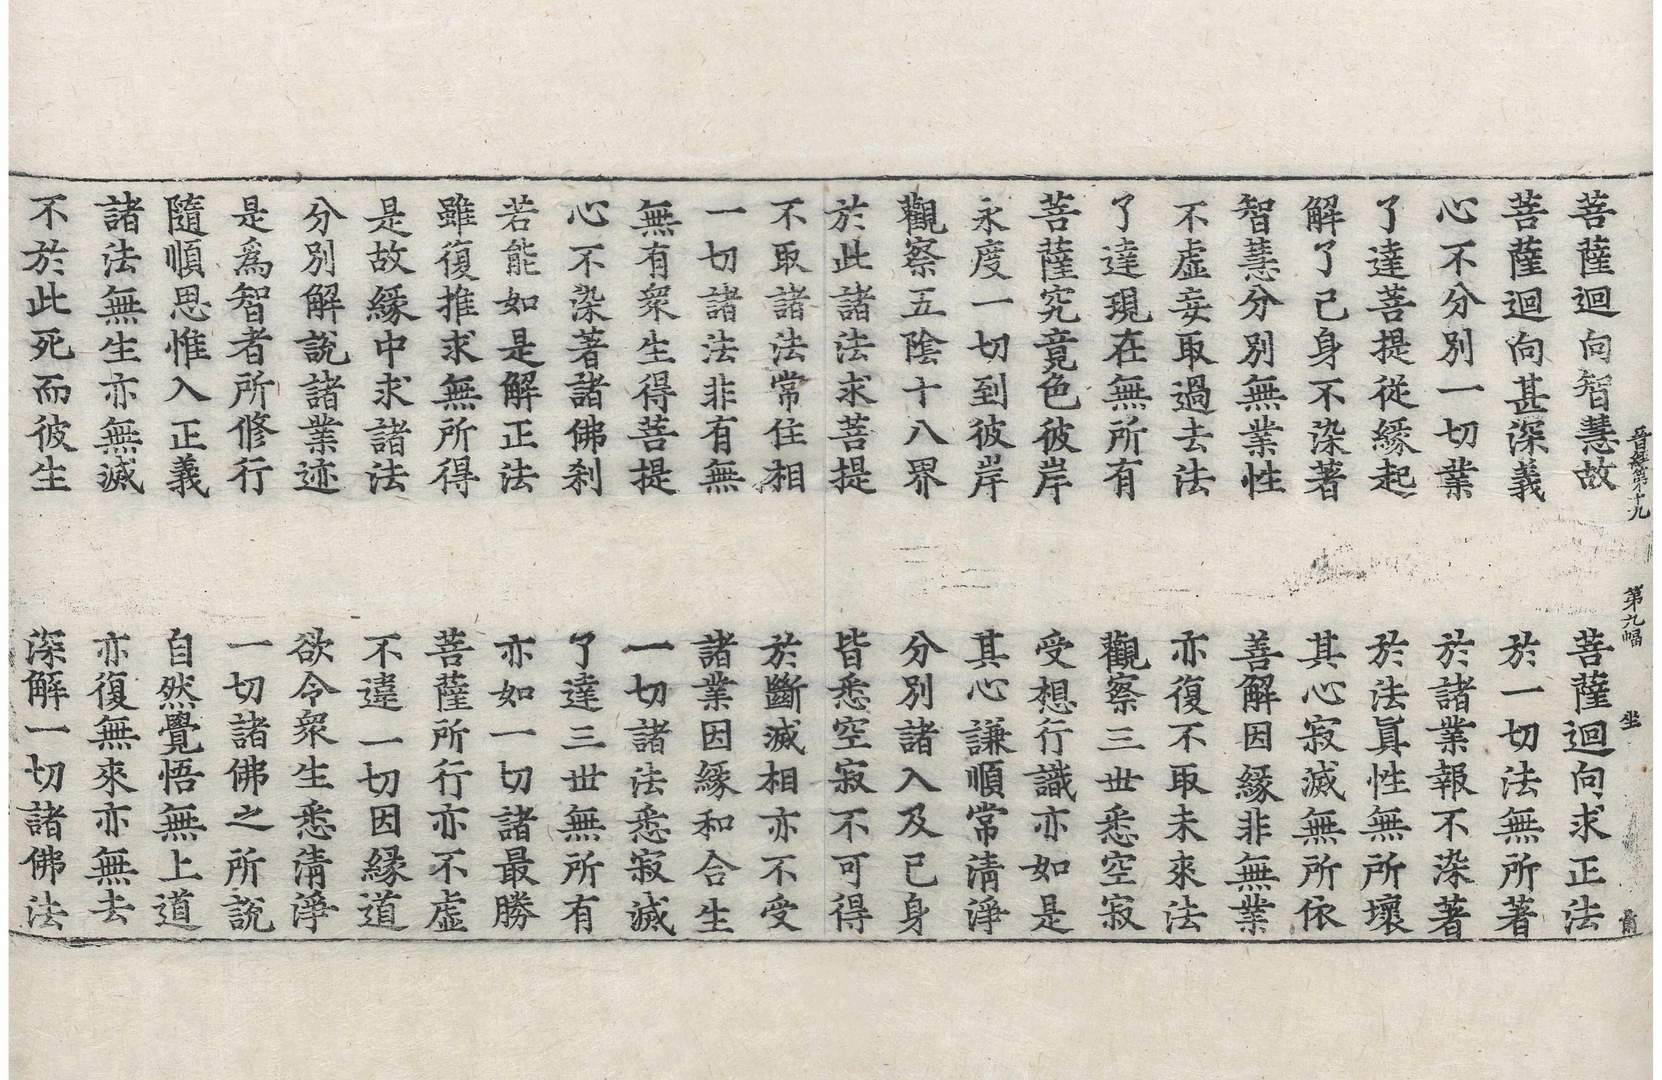 晉經第十九　第九幅　坐
菩薩迴向智慧故　菩薩迴向求正法
菩薩迴向甚深義　於一切法無所著
心不分別一切業　於諸業報不染著
了達菩提從緣起　於法眞性無所壞
解了已身不染著　其心寂滅無所依
智慧分別無業性　善解因緣非無業
不虛妄取過去法　亦復不取未來法
了達現在無所有　觀察三世悉空寂
菩薩究竟色彼岸　受想行識亦如是
永度一切到彼岸　其心謙順常淸淨
觀察五陰十八界　分別諸入及已身
於此諸法求菩提　皆悉空寂不可得
不取諸法常住相　於斷滅相亦不受
一切諸法非有無　諸業因緣和合生
無有衆生得菩提　一切諸法悉寂滅
心不染著諸佛刹　了達三世無所有
若能如是解正法　亦如一切諸最勝
雖復推求無所得　菩薩所行亦不虛
是故緣中求諸法　不違一切因緣道
分別解說諸業迹　欲令衆生悉淸淨
是爲智者所修行　一切諸佛之所說
隨順思惟入正義　自然覺悟無上道
諸法無生亦無滅　亦復無來亦無去
不於此死而彼生　深解一切諸佛法